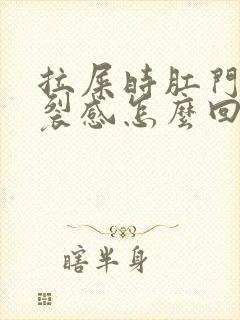 拉屎時肛門
裂感怎麼回
瞎半身